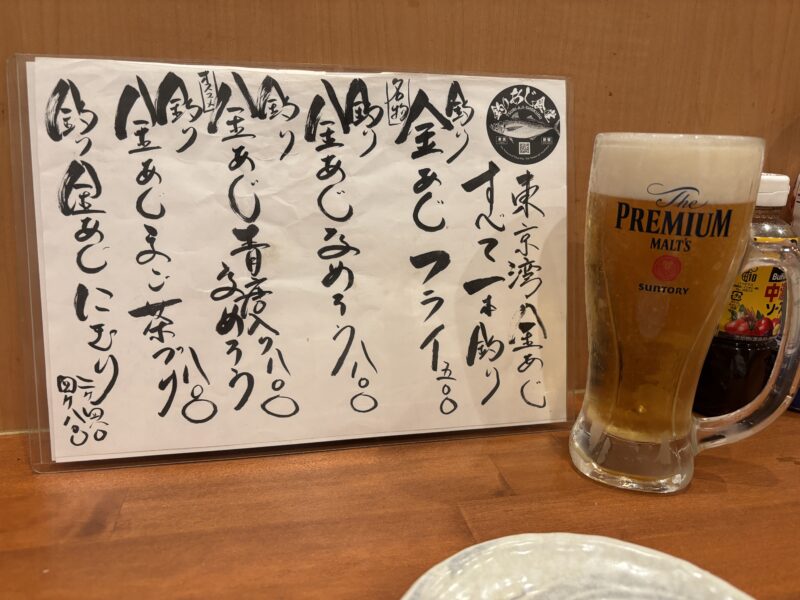 釣りあじ食堂
東京湾の金あじ
すべて一本釣り
名物
釣り
金あじフライ 五〇〇
釣り
金あじなめろう 八〇〇
オススメ
釣り
金あじ青唐入り
なめろう 八〇〇
釣り
金あじまご茶づけ 八〇〇
釣り金あじにぎり
二ケ 四〇〇
四ケ 八〇〇
The
PREMIUM
MALT'S
SUNTORY
Bull
中濃
ソース